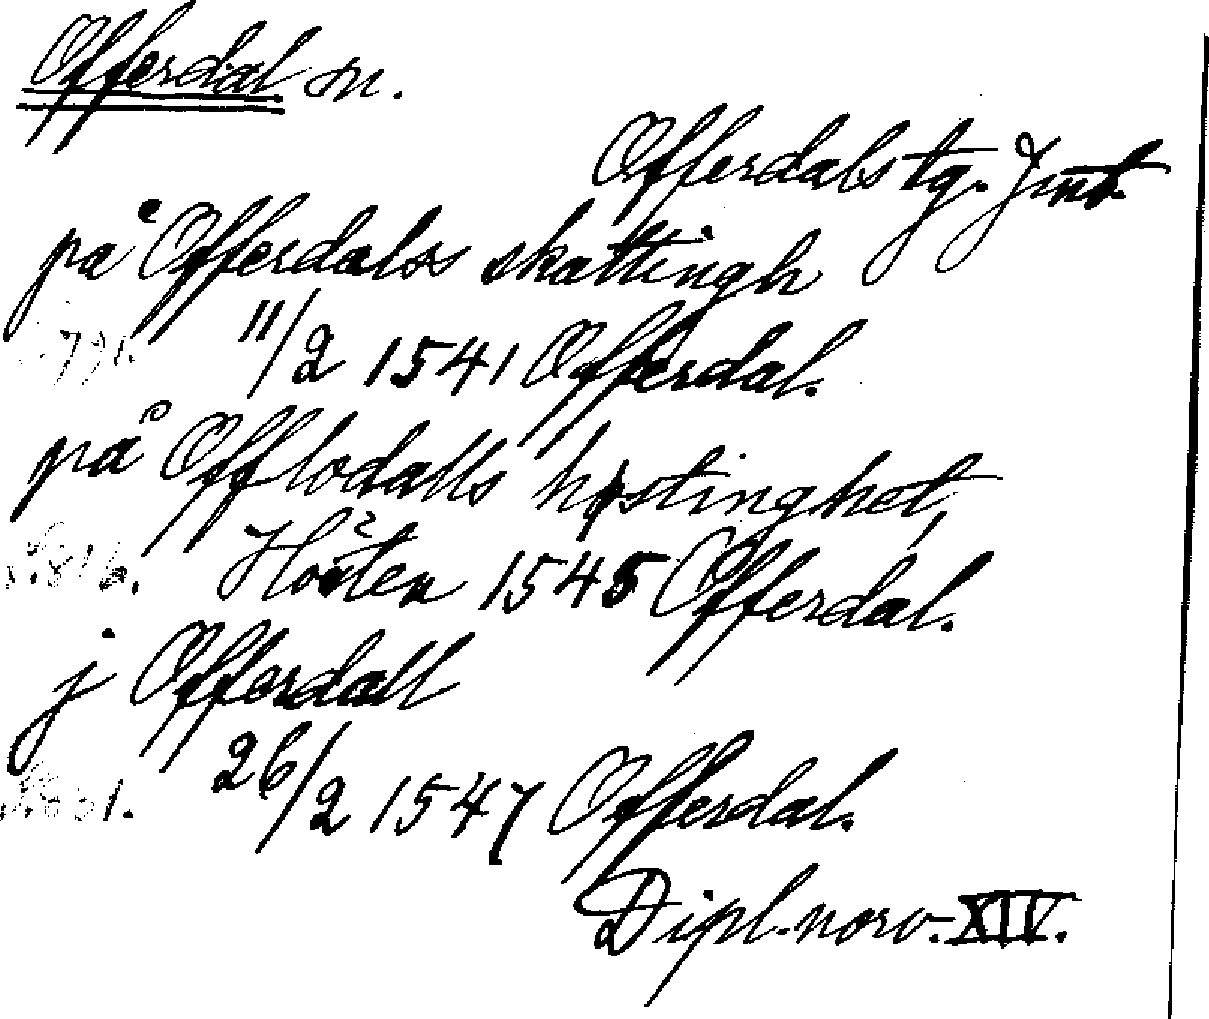 Offerdal sn.
Offerdals tg. Jmt.
på Offerdalss skattingh
11/2 1541 Offerdal.
på Offlodalls høstinghet,
Hösten 1545 Offerdal.
j Offerdall
26/2 1547 Offerdal.
Dipl. norv. XIV.